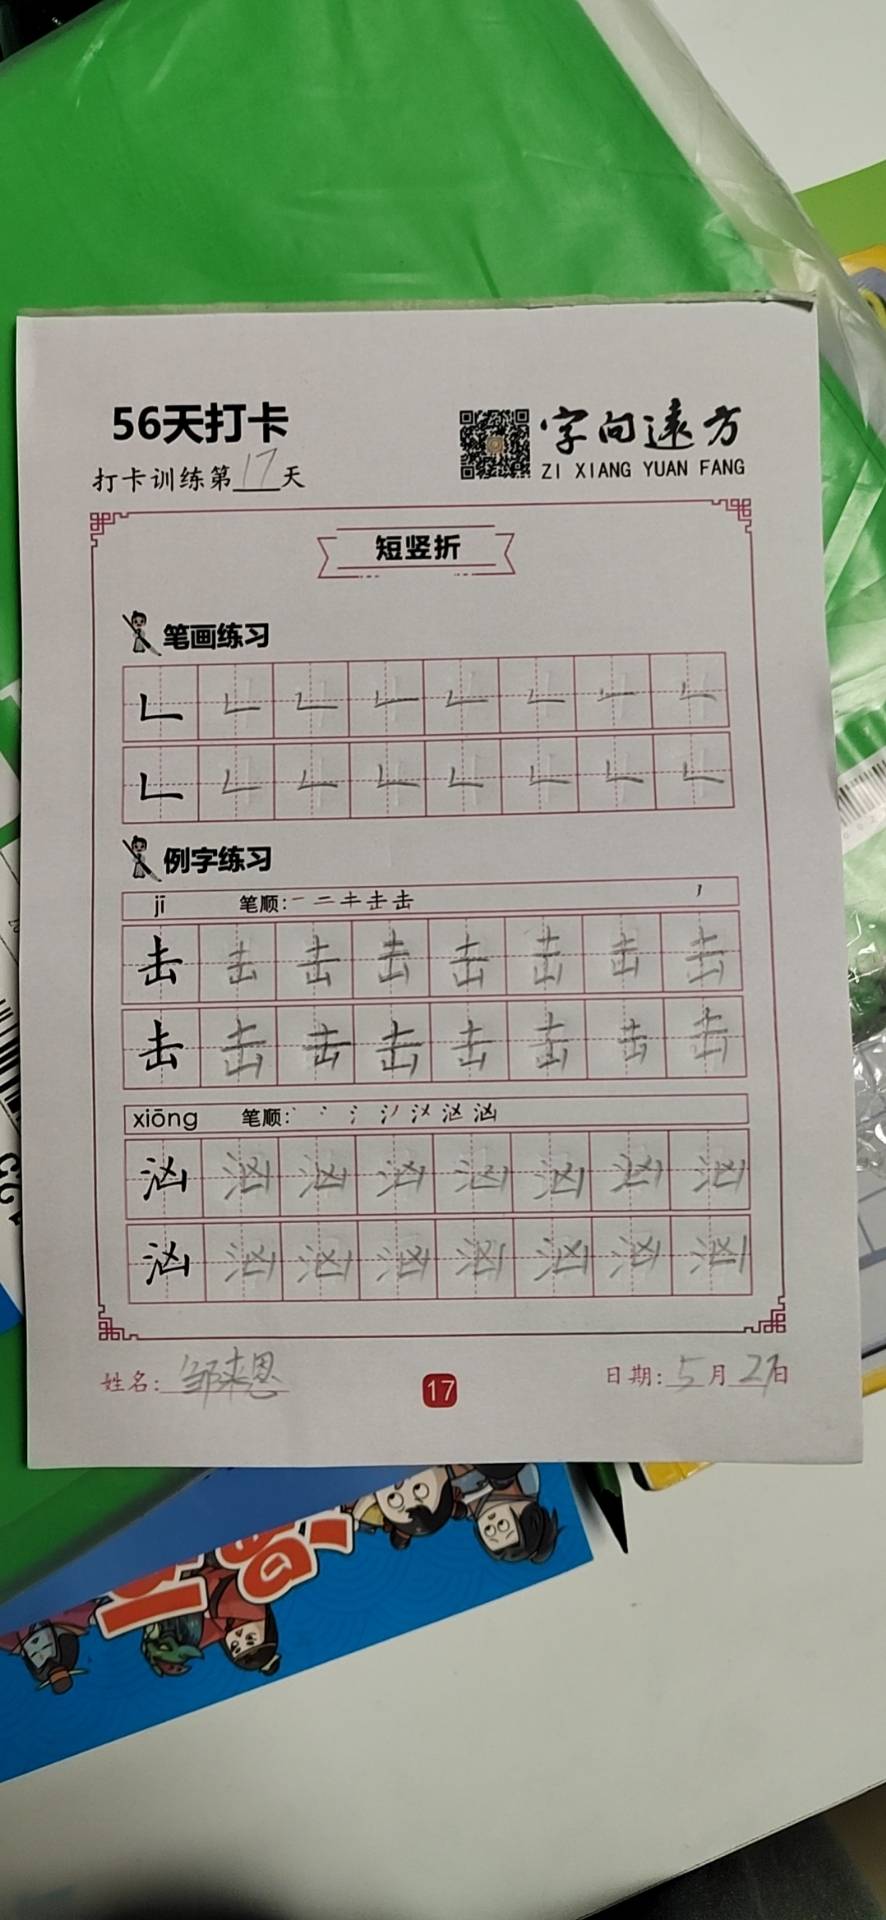 56天打卡
字向远方
打卡训练第17天
ZI XIANG YUAN FANG
短竖折
笔画练习
𠃊 𠃊 𠃊 𠃊 𠃊 𠃊 𠃊 𠃊
𠃊 𠃊 𠃊 𠃊 𠃊 𠃊 𠃊 𠃊
例字练习
jī 笔顺:
击 击 击 击 击 击 击 击
击 击 击 击 击 击 击 击
xiōng 笔顺:
汹 汹 汹 汹 汹 汹 汹 汹
汹 汹 汹 汹 汹 汹 汹 汹
姓名:邹来恩 17 日期:5月27日